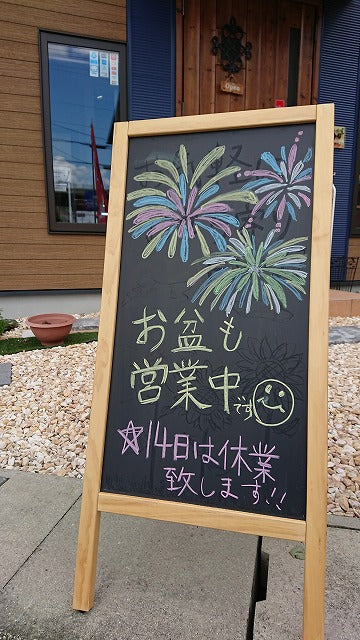 Open
お盆も
営業中です
☆14日は休業
致します!!